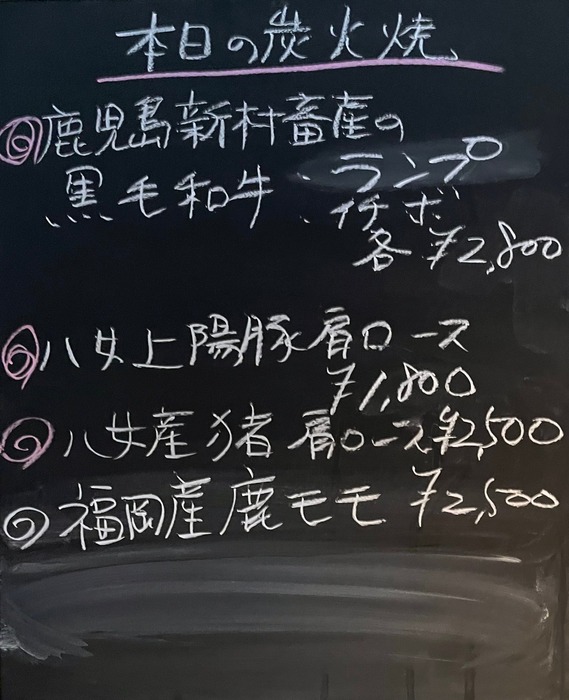 本日の炭火焼
◎鹿児島新村畜産の
黒毛和牛・ランプ
・イチボ
各¥2,800
◎八女上陽豚肩ロース
¥1,800
◎八女産猪肩ロース¥2,500
◎福岡産鹿モモ ¥2,500